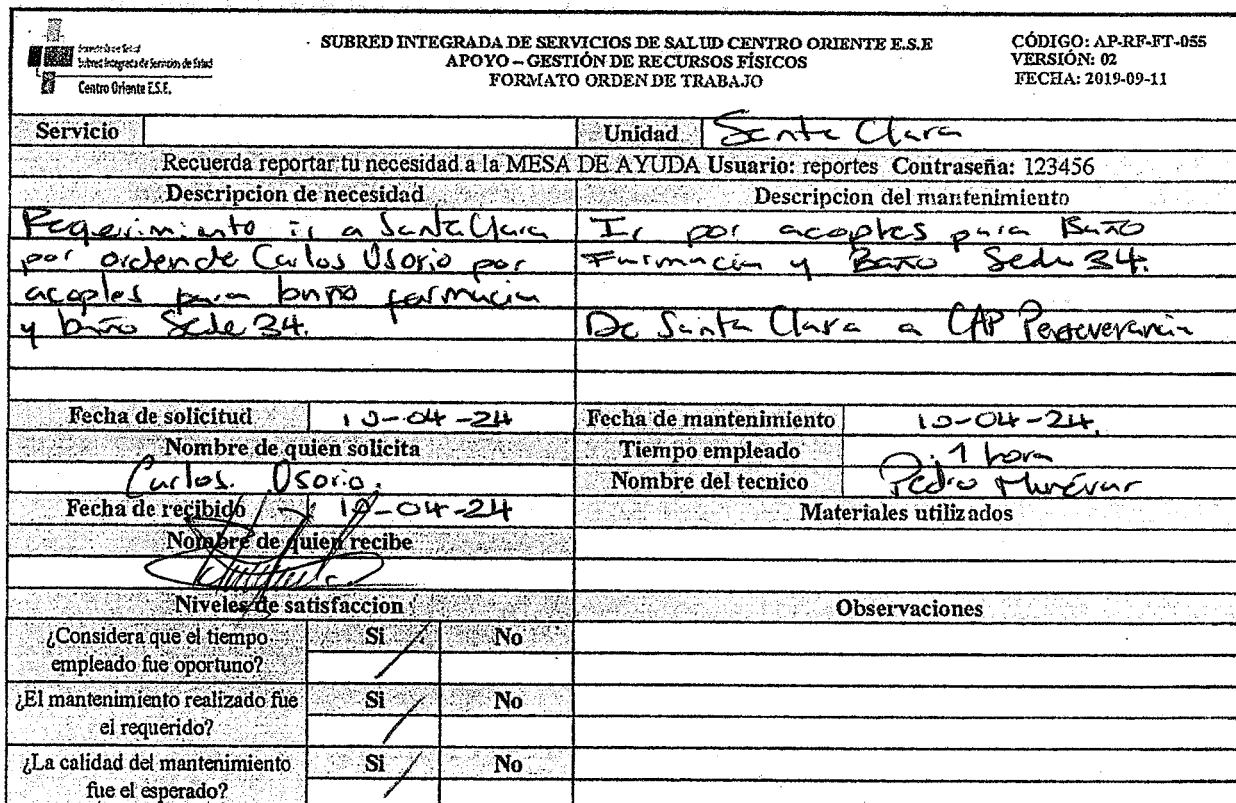 Secretaría de Salud
Subred Integrada de Servicios de Salud
Centro Oriente E.S.E.
SUBRED INTEGRADA DE SERVICIOS DE SALUD CENTRO ORIENTE E.S.E
APOYO – GESTIÓN DE RECURSOS FÍSICOS
FORMATO ORDEN DE TRABAJO
CÓDIGO: AP-RF-FT-055
VERSIÓN: 02
FECHA: 2019-09-11
Servicio
Unidad Santa Clara
Recuerda reportar tu necesidad a la MESA DE AYUDA Usuario: reportes Contraseña: 123456
Descripcion de necesidad
Requerimiento ir a Santa Clara
por orden de Carlos Osorio por
acoples para baño farmacia
y baño Sede 34.
Descripcion del mantenimiento
Ir por acoples para Baño
Farmacia y Baño Sede 34.
De Santa Clara a CAP Perseverancia
Fecha de solicitud 10-04-24
Fecha de mantenimiento 10-04-24.
Nombre de quien solicita
Carlos Osorio.
Tiempo empleado 1 hora
Nombre del tecnico Pedro Munévar
Fecha de recibido 10-04-24
Materiales utilizados
Nombre de quien recibe
Niveles de satisfaccion
Observaciones
¿Considera que el tiempo
empleado fue oportuno?
Si No
¿El mantenimiento realizado fue
el requerido?
Si No
¿La calidad del mantenimiento
fue el esperado?
Si No